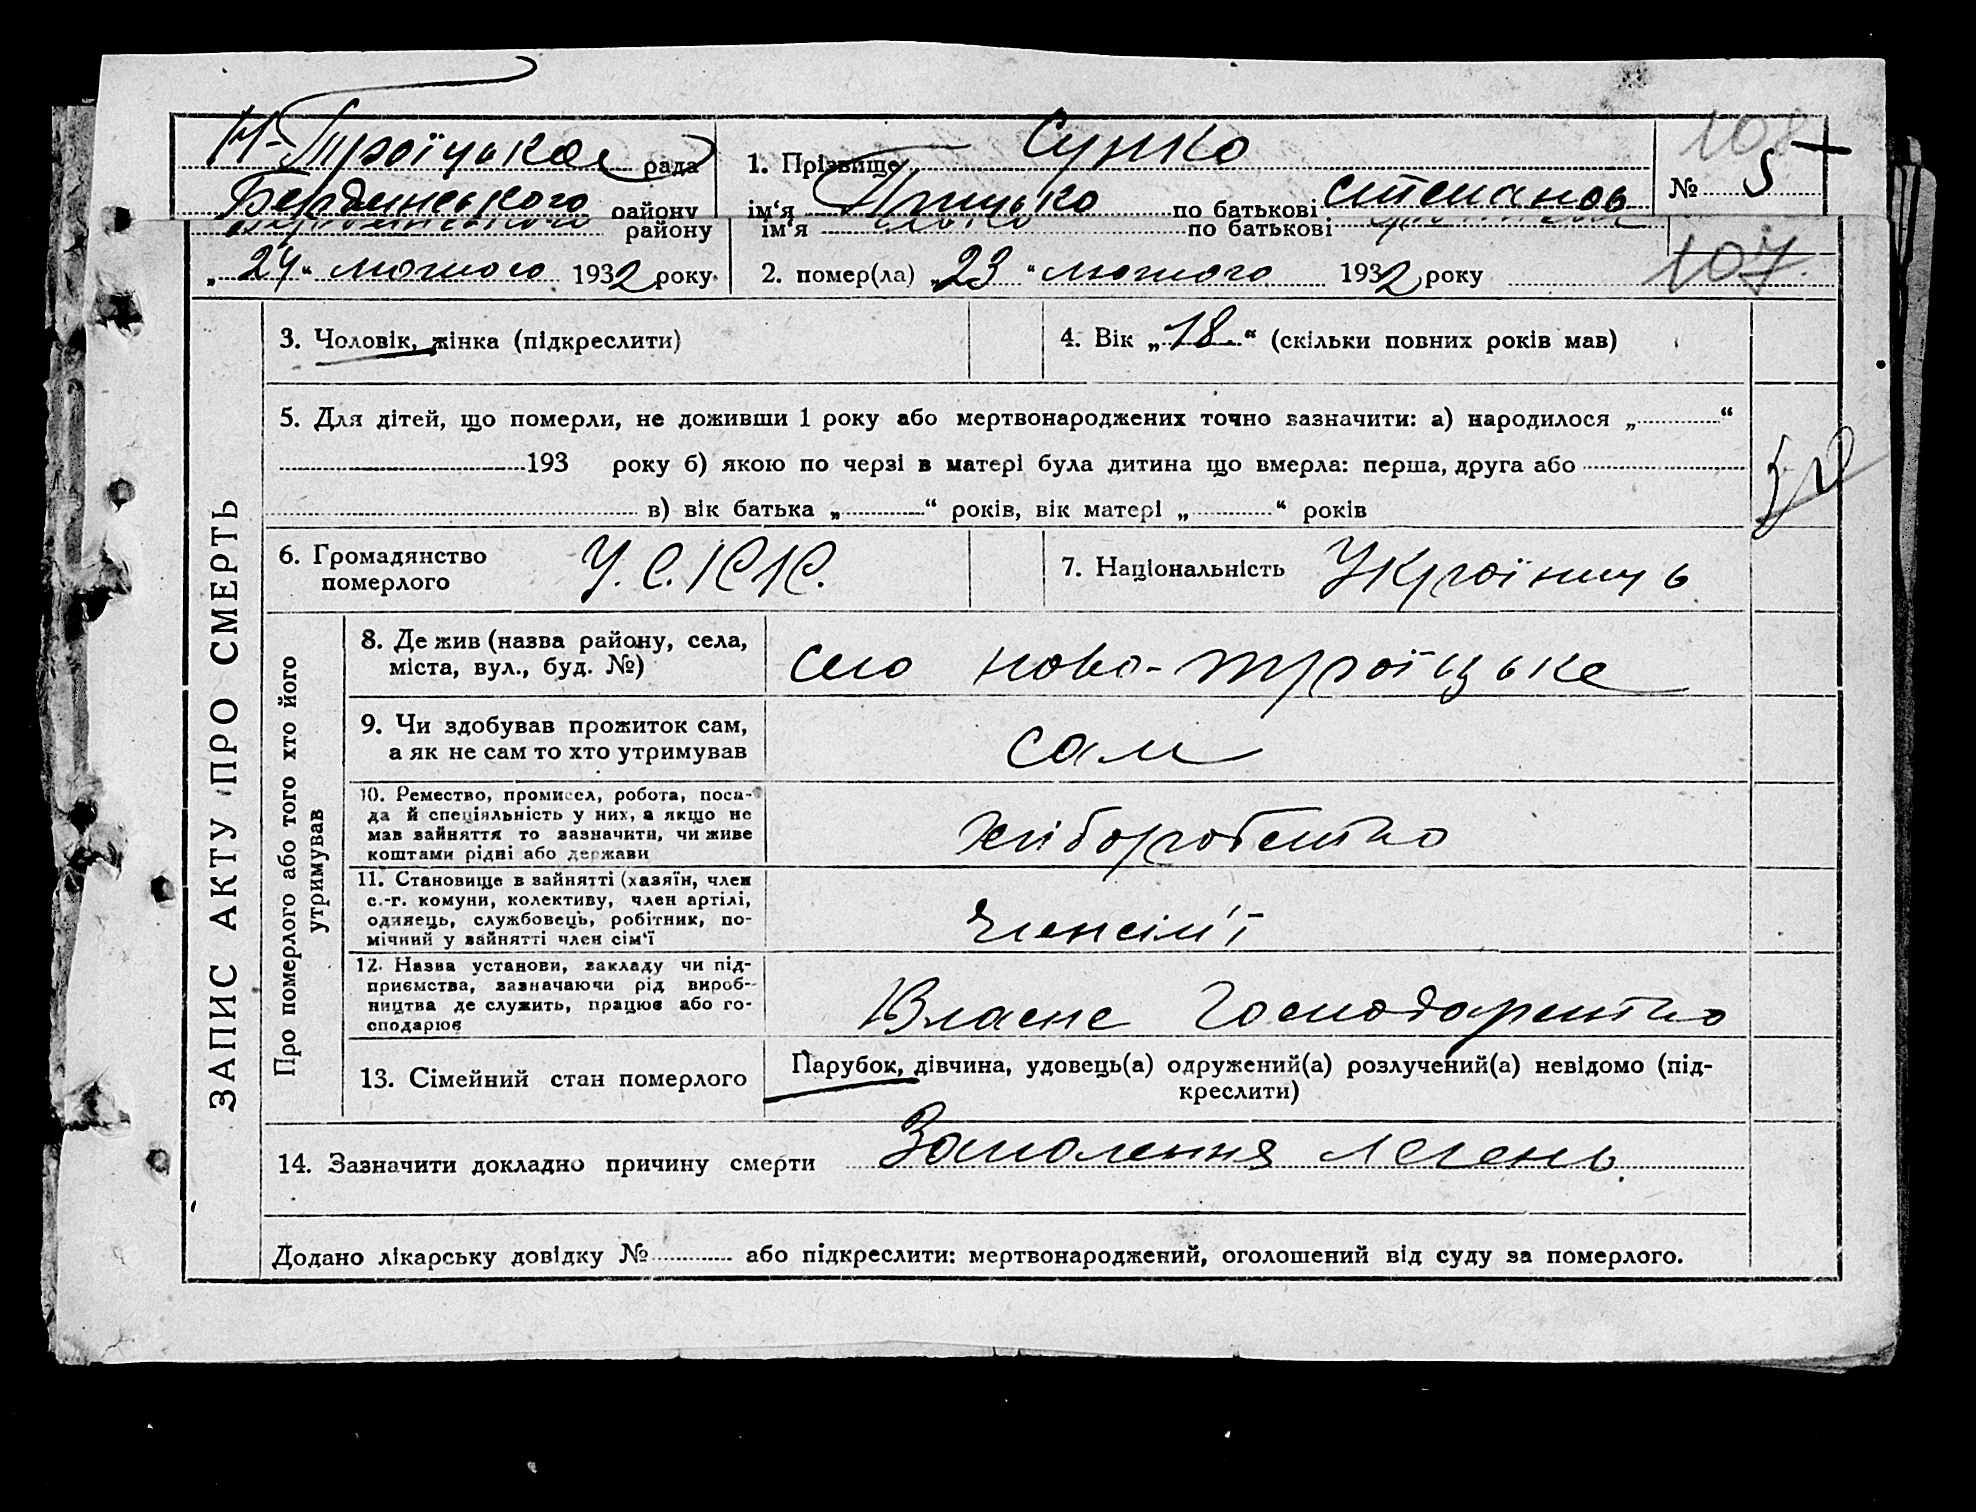 Н-Троїцькая рада
1. Прізвище Сунко
108
№ 5
Бердянського району
ім‘я Грицько по батькові Степанов
району
ім‘я по батькові
107
„24“ лютого 1932 року.
2. помер(ла) „23“ лютого 1932 року
ЗАПИС АКТУ ПРО СМЕРТЬ
3. Чоловік, жінка (підкреслити)
4. Вік „18.“ (скільки повних років мав)
5. Для дітей, що померли, не доживши 1 року або мертвонароджених точно зазначити: а) народилося „ “
193 року б) якою по черзі в матері була дитина що вмерла: перша, друга або
в) вік батька „ “ років, вік матері „ “ років
6. Громадянство
померлого
У.С.Р.Р.
7. Національність Українець
Про померлого або того хто його
утримував
8. Де жив (назва району, села,
міста, вул., буд. №)
село ново-троїцьке
9. Чи здобував прожиток сам,
а як не сам то хто утримував
сам
10. Ремество, промисел, робота, поса-
да й спеціяльність у них, а якщо не
мав зайняття то зазначити, чи живе
коштами рідні або держави
Хліборобство
11. Становище в зайнятті (хазяїн, член
с.-г. комуни, колективу, член артілі,
одинець, службовець, робітник, по-
мічний у зайнятті член сім‘ї
Член сім'ї
12. Назва установи, закладу чи під-
приємства, зазначаючи рід вироб-
ництва де служить, працює або го-
сподарює
Власне Господарство
13. Сімейний стан померлого
Парубок, дівчина, удовець(а) одружений(а) розлучений(а) невідомо (під-
креслити)
14. Зазначити докладно причину смерти Запалення легень.
Додано лікарську довідку № або підкреслити: мертвонароджений, оголошений від суду за померлого.